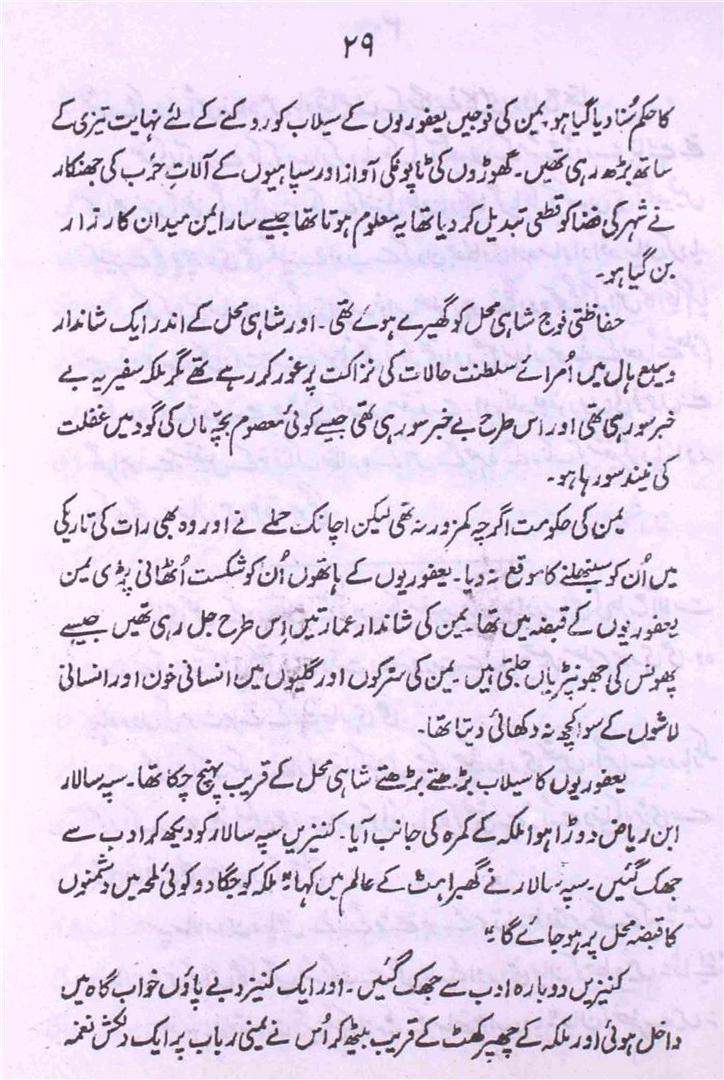 ۲۹
کا حکم سُنا دیا گیا ہو۔ یمن کی فوجیں یعفوریوں کے سیلاب کو روکنے کے لئے نہایت تیزی کے
ساتھ بڑھ رہی تھیں۔ گھوڑوں کی ٹاپونکی آواز اور سپاہیوں کے آلاتِ حرب کی جھنکار
نے شہر کی فضا کو قطعی تبدیل کر دیا تھا یہ معلوم ہوتا تھا جیسے سارا یمن میدان کارزار
بن گیا ہو۔
حفاظتی فوج شاہی محل کو گھیرے ہوئے تھی۔ اور شاہی محل کے اندر ایک شاندار
وسیع ہال میں اُمرائے سلطنت حالات کی نزاکت پر غور کر رہے تھے مگر ملکہ سفیریہ بے
خبر سو رہی تھی اور اس طرح بے خبر سو رہی تھی جیسے کوئی معصوم بچّہ ماں کی گود میں غفلت
کی نیند سو رہا ہو۔
یمن کی حکومت اگرچہ کمزور نہ تھی لیکن اچانک حملے نے اور وہ بھی رات کی تاریکی
میں اُن کو سنبھلنے کا موقع نہ دیا۔ یعفوریوں کے ہاتھوں اُن کو شکست اُٹھانی پڑی یمن
یعفوریوں کے قبضہ میں تھا۔ یمن کی شاندار عمارتیں اِس طرح جل رہی تھیں جیسے
پھونس کی جھونپڑیاں جلتی ہیں۔ یمن کی سڑکوں اور گلیوں میں انسانی خون اور انسانی
لاشوں کے سوا کچھ نہ دکھائی دیتا تھا۔
یعفوریوں کا سیلاب بڑھتے بڑھتے شاہی محل کے قریب پہنچ چکا تھا۔ سپہ سالار
ابن ریاض دوڑا ہوا ملکہ کے کمرہ کی جانب آیا۔ کنیزیں سپہ سالار کو دیکھ کر ادب سے
جھک گئیں۔ سپہ سالار نے گھبراہٹ کے عالم میں کہا "ملکہ کو جگا دو کوئی لمحہ میں دشمنوں
کا قبضہ محل پر ہو جائے گا"
کنیزیں دوبارہ ادب سے جھک گئیں۔ اور ایک کنیز دبے پاؤں خواب گاہ میں
داخل ہوئی اور ملکہ کے چھپر کھٹ کے قریب بیٹھ کر اُس نے یمنی رباب پر ایک دلکش نغمہ